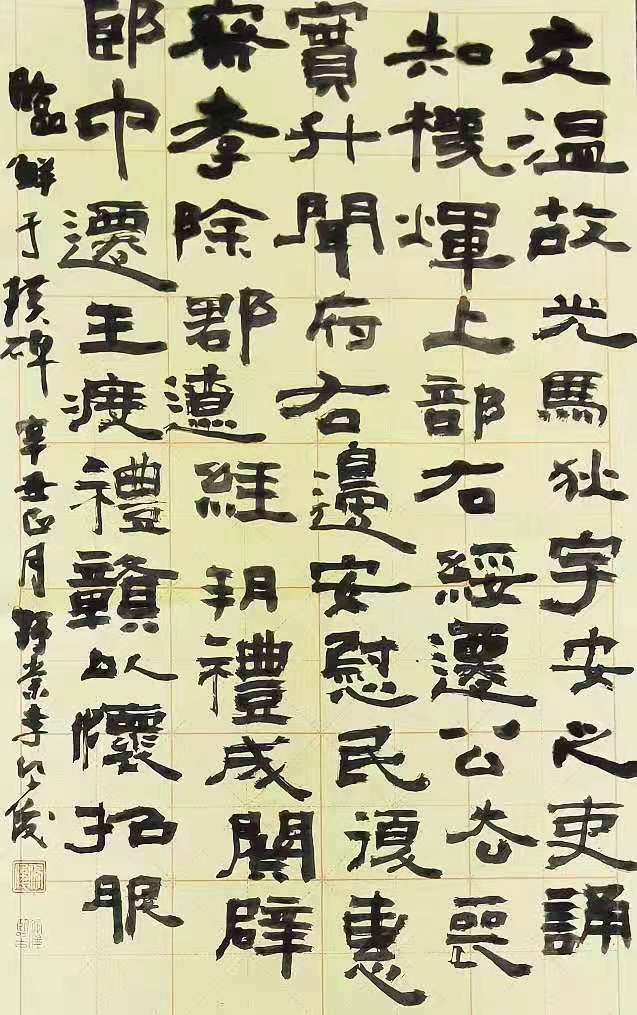 文温故光馬狄字安之吏誦
知機煇上部右綏遷公去喪
實升聞府右邊安慰民復惠
齋孝除郡遭經朝禮成闕辟
郎中遷王度禮贛以懷招服
臨鮮于璜碑辛丑正月